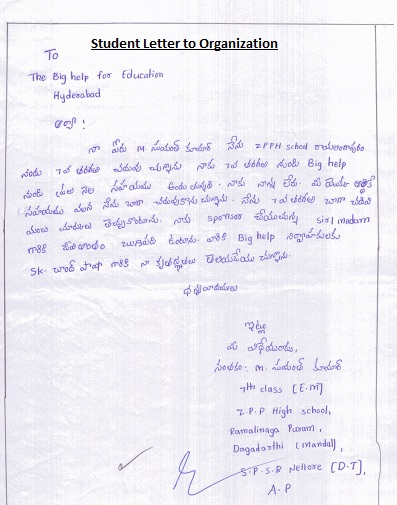 Student Letter to Organization
To
The Big help for Education
Hyderabad
ఆర్యా!
నా పేరు M. సుమంత్ కుమార్ నేను ZPPH school రామలింగాపురం
నందు 7వ తరగతి చదువు చున్నాను నాకు 7వ తరగతి నుండి Big help
నుండి ప్రతి నెల సహాయము అందు చున్నది. నాకు నాన్న లేడు. మీ
సహాయము వలన నేను బాగా చదువుకొను చున్నాను. నేను 7వ తరగతి బాగా చదివి
మంచి మార్కులు తెచ్చుకుంటాను. నాకు sponsor చేయుచున్న sir/madam
గారికి జీవితాంతం ఋణపడి ఉంటాను. వారికి Big help నిర్వాహకులకు
SK. చాంద్ పాషా గారికి నా కృతజ్ఞతలు తెలియచేయు చున్నాను.
ధన్యవాదములు
ఇట్లు
మీ విధేయుడు,
సంతకం: M. సుమంత్ కుమార్
7th class [E.M]
Z.P.P High school,
Ramalinaga Puram,
Dagadarthi [Mandal],
S.P.S.R Nellore [D.T],
A.P